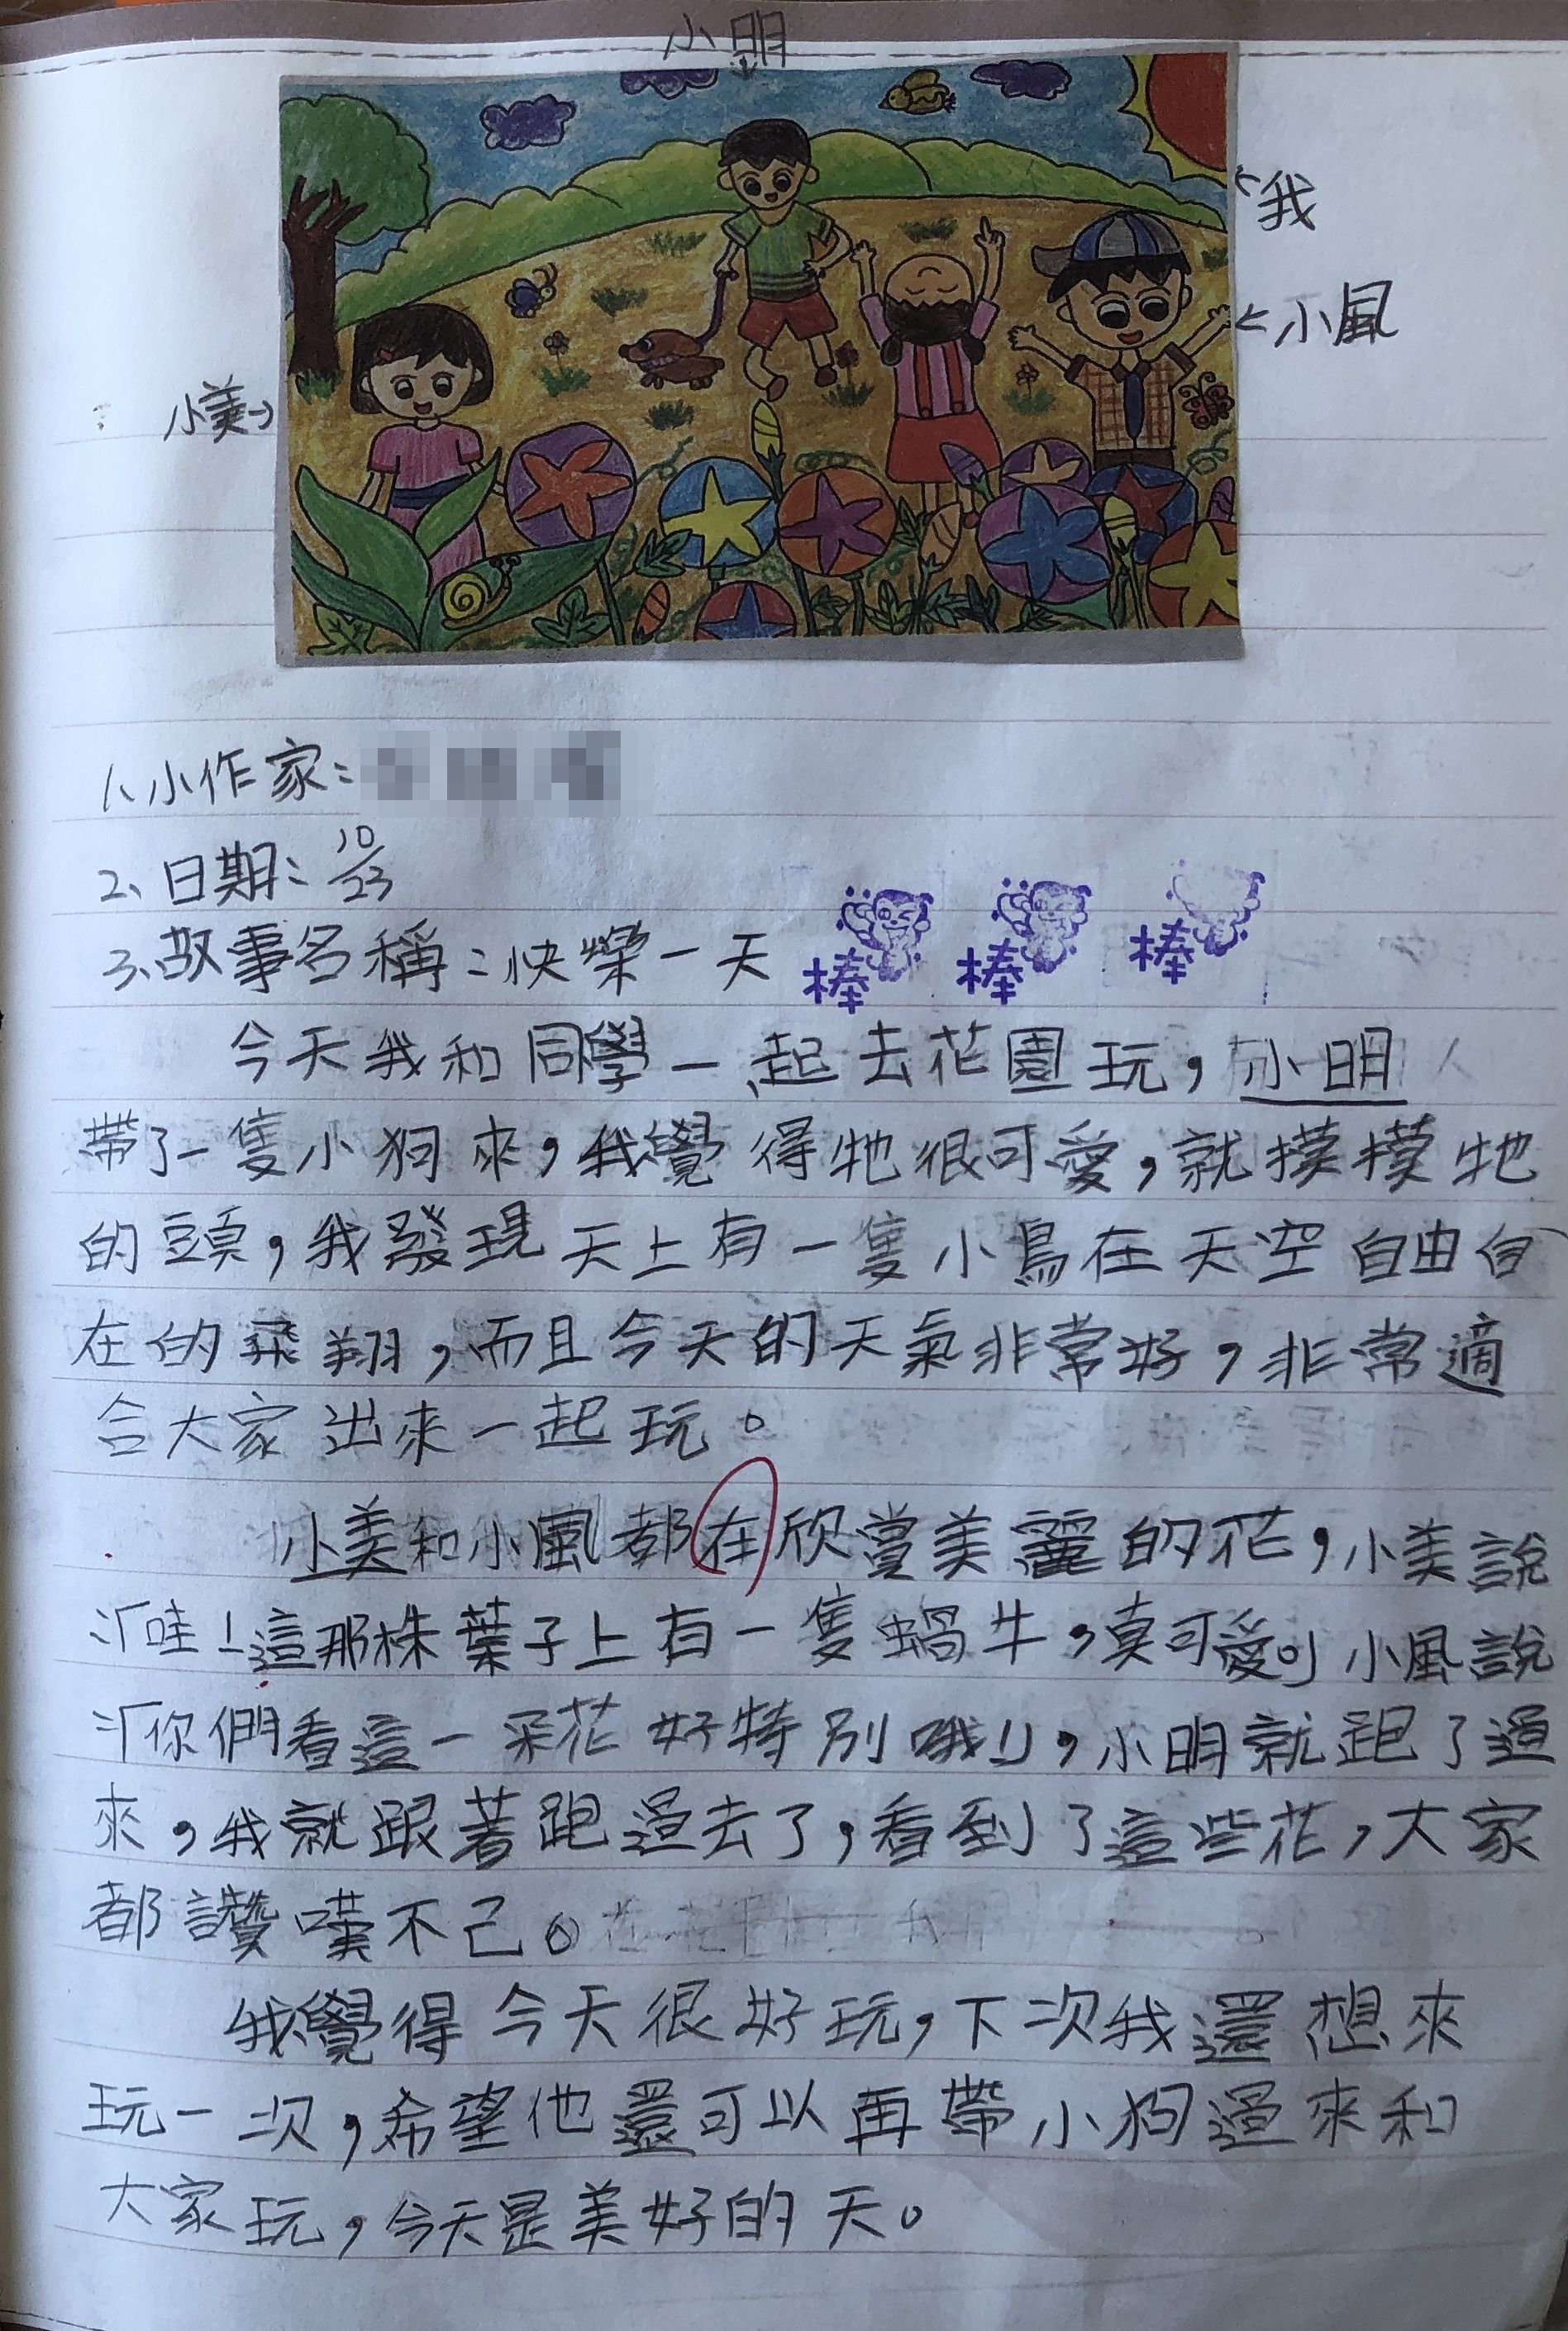 小明
我
小風
小美
1、小作家:
2、日期: 10/23
3、故事名稱:快樂一天
棒 棒 棒
今天我和同學一起去花園玩,小明
帶了一隻小狗來,我覺得牠很可愛,就摸摸牠
的頭,我發現天上有一隻小鳥在天空自由自
在的飛翔,而且今天的天氣非常好,非常適
合大家出來一起玩。
小美和小風都在欣賞美麗的花,小美說
:「哇!這那株葉子上有一隻蝸牛,真可愛。」小風說
:「你們看這一朵花好特別哦!」,小明就跑了過
來,我就跟著跑過去了,看到了這些花,大家
都讚嘆不己。
我覺得今天很好玩,下次我還想來
玩一次,希望他還可以再帶小狗過來和
大家玩,今天是美好的天。